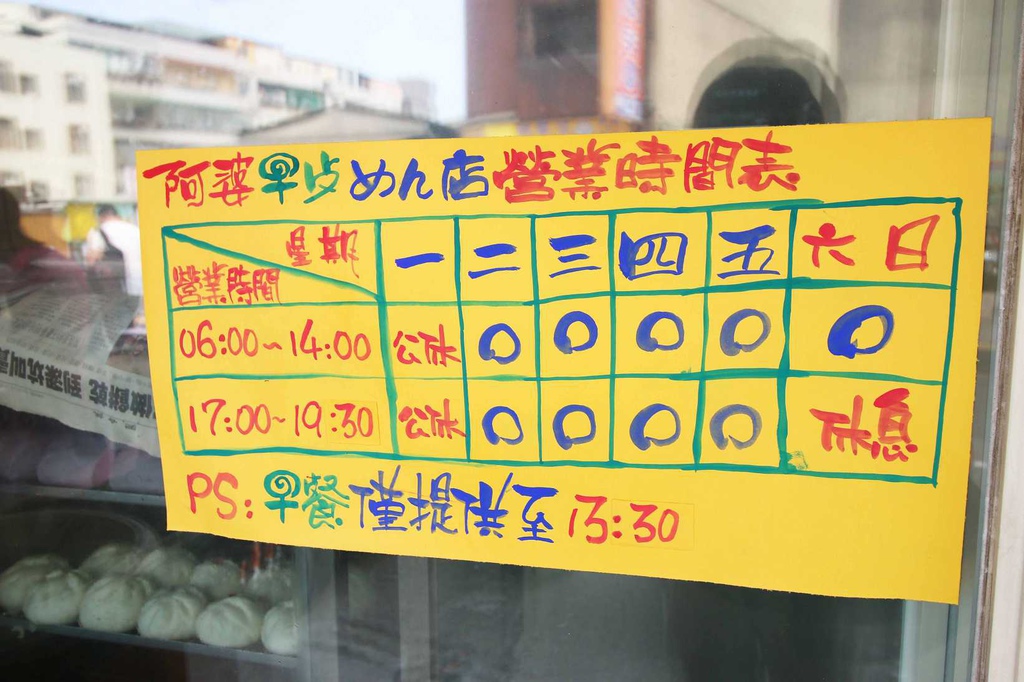 阿婆早点めん店營業時間表
星期 一 二 三 四 五 六日
營業時間
06:00~14:00 公休 〇 〇 〇 〇 〇
17:00~19:30 公休 〇 〇 〇 〇 休息
PS:早餐僅提供至13:30